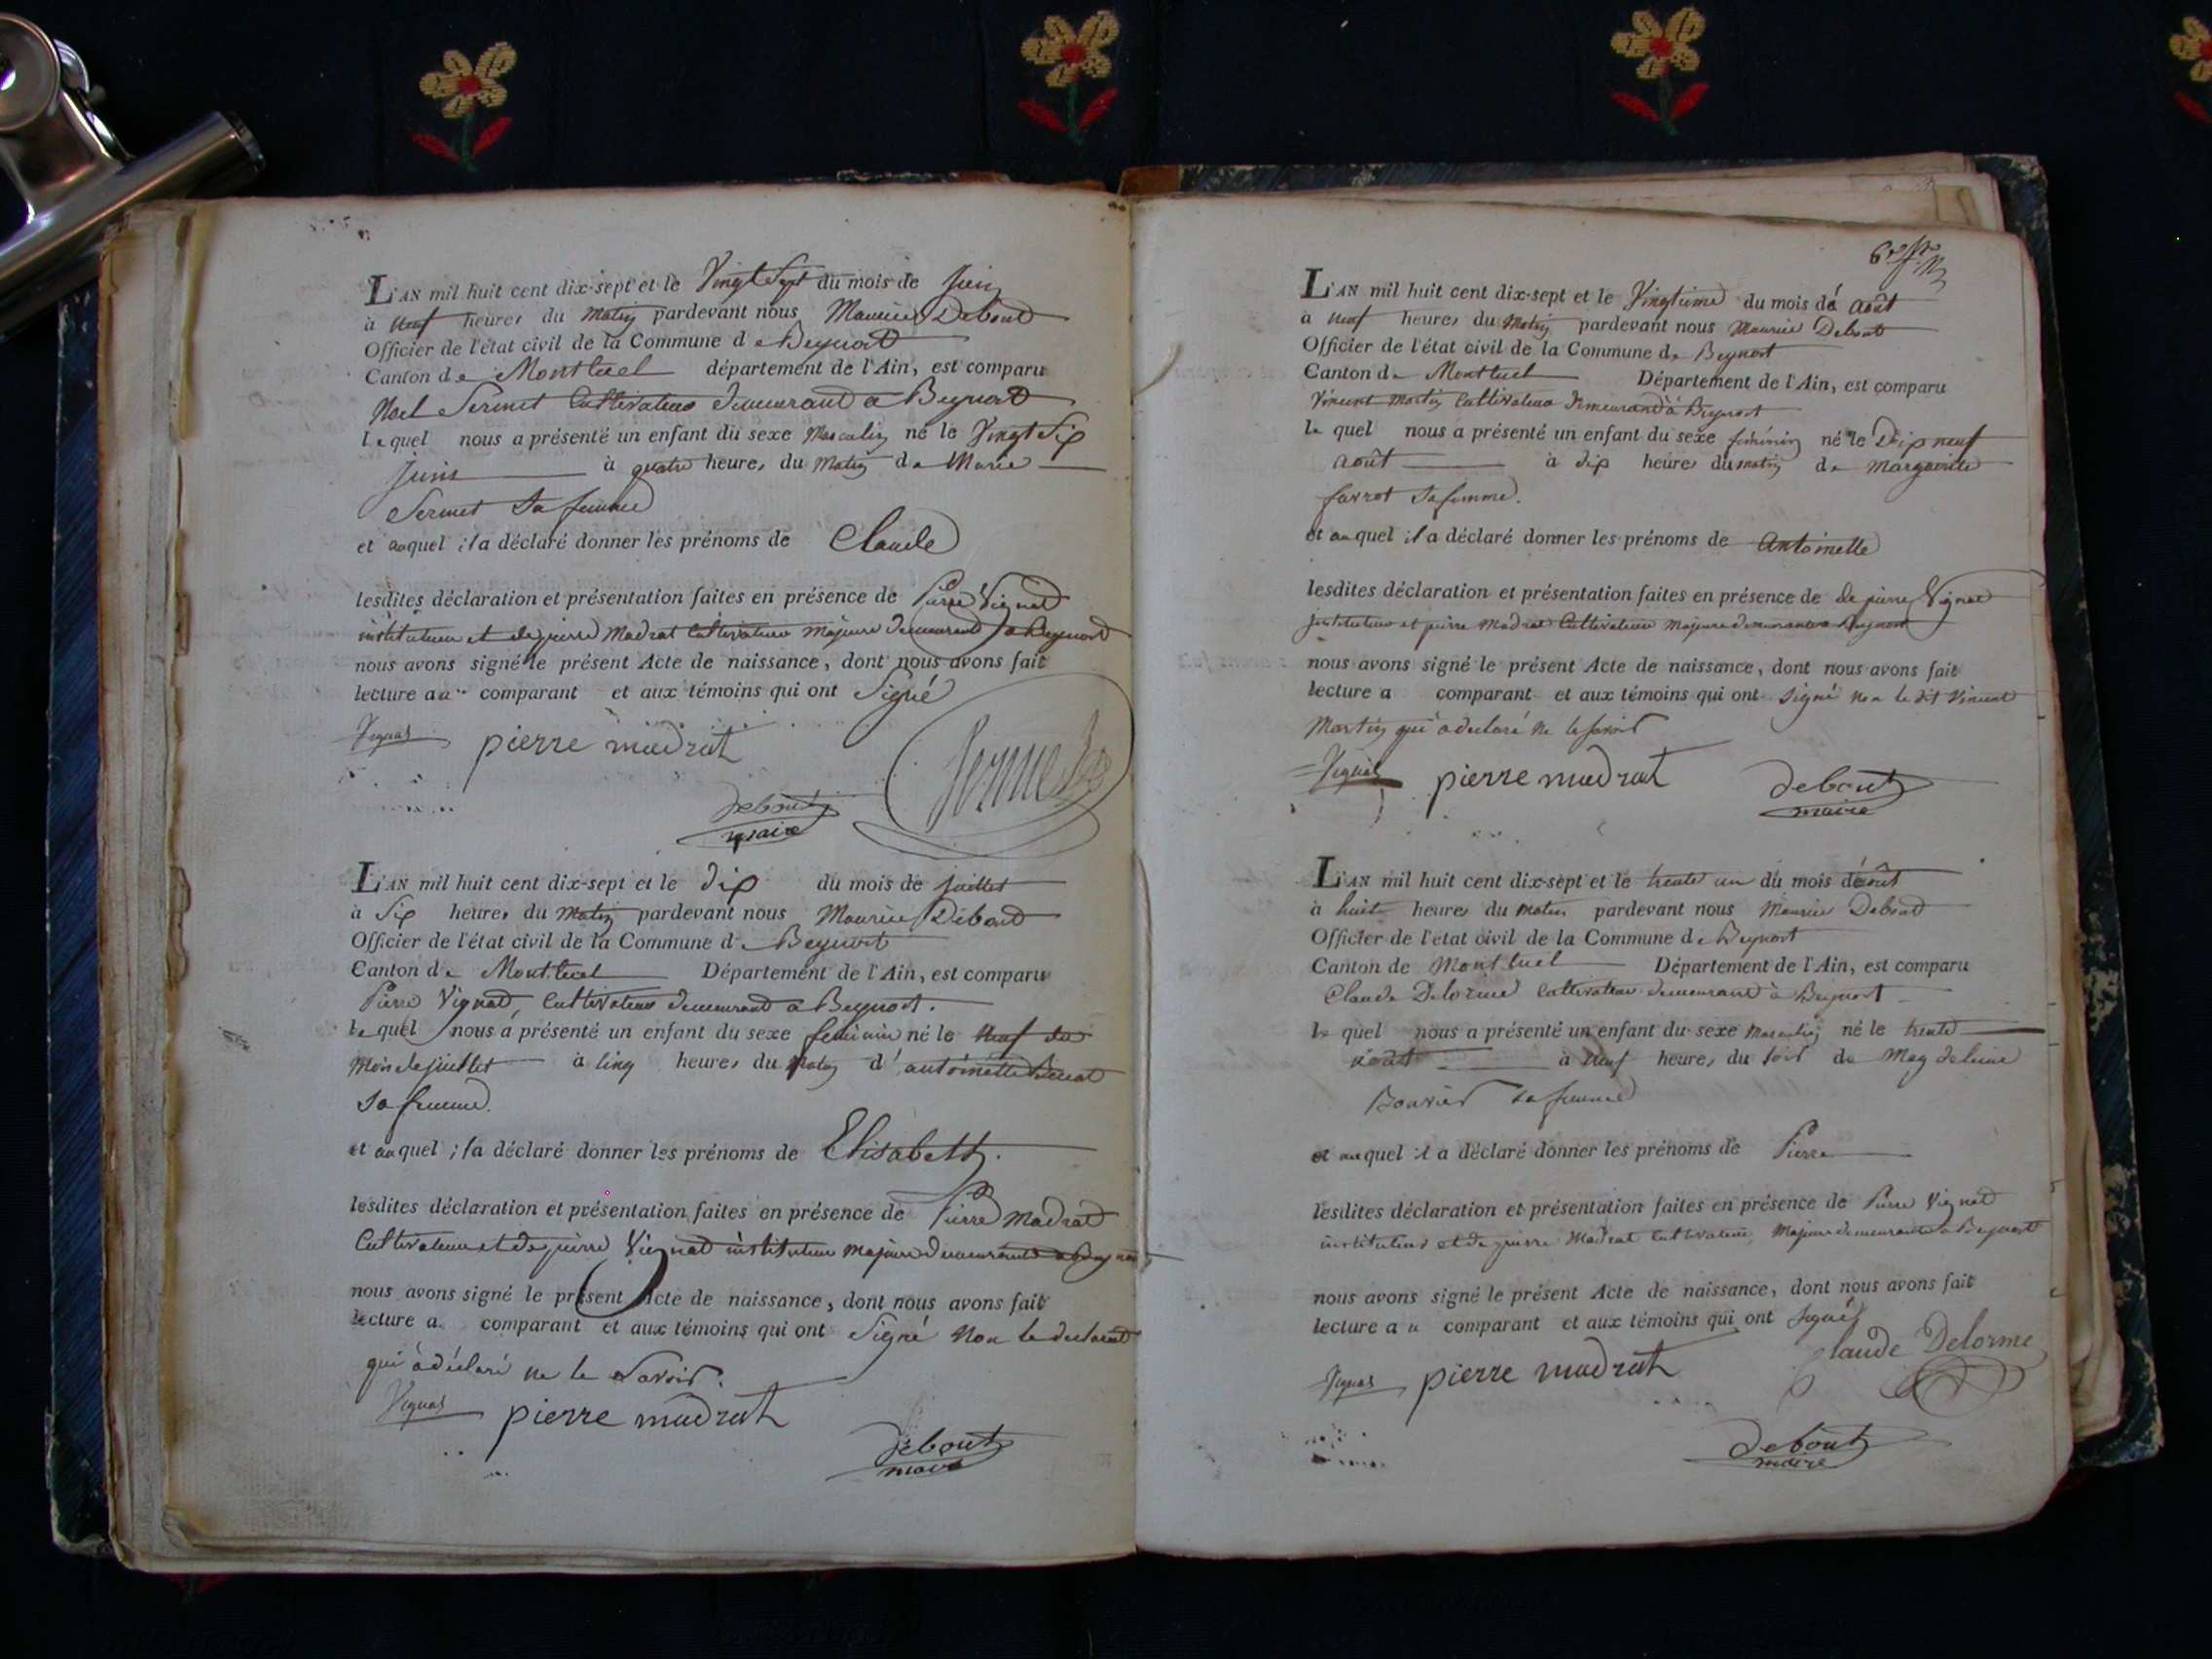 L'AN mil huit cent dix-sept et le Vingt Sept du mois de Juin
à neuf heures du Matin pardevant nous Maurice Debout
Officier de l'état civil de la Commune de Beynost
Canton de Montluel département de l'Ain, est comparu
Noel Sermet Cultivateur demeurant à Beynost
lequel nous a présenté un enfant du sexe Masculin né le Vingt Six
Juin à quatre heures du Matin de Marie
Sermet Sa femme
et auquel il a déclaré donner les prénoms de Claude
lesdites déclaration et présentation faites en présence de Pierre Vignat
instituteur et de pierre Madrat Cultivateur Majeurs demeurant à Beynost
nous avons signé le présent Acte de naissance, dont nous avons fait
lecture au comparant et aux témoins qui ont Signé
Vignat pierre madrat Sermet
debout
maire
L'AN mil huit cent dix-sept et le dix du mois de Juillet
à Six heures du Matin pardevant nous Maurice Debout
Officier de l'état civil de la Commune de Beynost
Canton de Montluel Département de l'Ain, est comparu
Pierre Vignat, Cultivateur demeurant à Beynost.
lequel nous a présenté un enfant du sexe feminin né le Neuf du
Mois de juillet à Cinq heures du Matin d'antoinette
Sa femme.
et auquel il a déclaré donner les prénoms de Elisabeth.
lesdites déclaration et présentation faites en présence de Pierre Madrat
Cultivateur et de pierre Vignat instituteur majeurs demeurants à Beynost
nous avons signé le présent Acte de naissance, dont nous avons fait
lecture a comparant et aux témoins qui ont Signé Non le declarant
qui à déclaré ne le Savoir.
Vignat pierre madrat
debout
maire
L'AN mil huit cent dix-sept et le Vingtieme du mois de août
à neuf heures du Matin pardevant nous Maurice Debout
Officier de l'état civil de la Commune de Beynost
Canton de Montluel Département de l'Ain, est comparu
Vincent Martin Cultivateur demeurand à Beynost
le quel nous a présenté un enfant du sexe féminin né le Dix neuf
août à dix heures du matin de Marguerite
farrot Sa femme.
et auquel il a déclaré donner les prénoms de Antoinette
lesdites déclaration et présentation faites en présence de de pierre Vignat
Jnstituteur et pierre Madrat Cultivateur Majeurs demeurants a Beynost
nous avons signé le présent Acte de naissance, dont nous avons fait
lecture a comparant et aux témoins qui ont signé non le dit Vincent
Martin qui à declaré ne le savoir
Vignat pierre madrat debout
maire
L'AN mil huit cent dix-sept et le trente un du mois d'août
à huit heures du matin pardevant nous Maurice Debout
Officier de l'état civil de la Commune de Beynost
Canton de Montluel Département de l'Ain, est comparu
Claude Delorme Cultivateur demeurant à Beynost
le quel nous a présenté un enfant du sexe Masculin né le trente
août à neuf heures du soir de Magdeleine
Bouvier sa femme
et auquel il a déclaré donner les prénoms de Pierre
lesdites déclaration et présentation faites en présence de Pierre Vignat
instituteur et de pierre Madrat Cultivateur, Majeurs demeurants a Beynost
nous avons signé le présent Acte de naissance, dont nous avons fait
lecture au comparant et aux témoins qui ont signés
Claude Delorme
Vignat pierre madrat
debout
maire